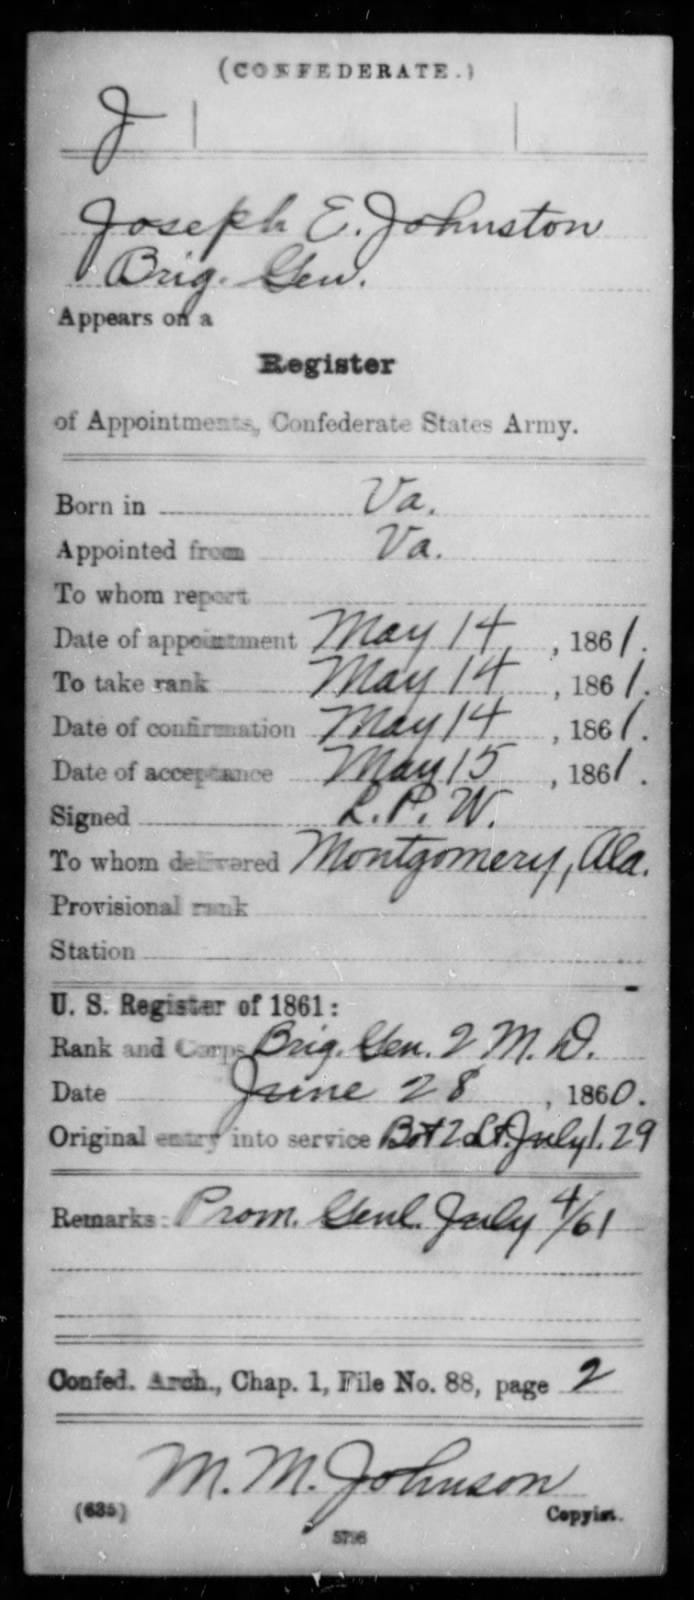 (CONFEDERATE.)
J
Joseph E. Johnston
Brig. Gen.
Appears on a
Register
of Appointments, Confederate States Army.
Born in Va.
Appointed from Va.
To whom report
Date of appointment May 14, 1861.
To take rank May 14, 1861.
Date of confirmation May 14, 1861.
Date of acceptance May 15, 1861.
Signed L. P. W.
To whom delivered Montgomery, Ala.
Provisional rank
Station
U. S. Register of 1861:
Rank and Corps Brig. Gen. 2 M. D.
Date June 28, 1860.
Original entry into service Bvt 2 Lt. July 1. 29
Remarks: Prom. Genl. July 4/61
Confed. Arch., Chap. 1, File No. 88, page 2
M. M. Johnson
(635) Copyist.
5796